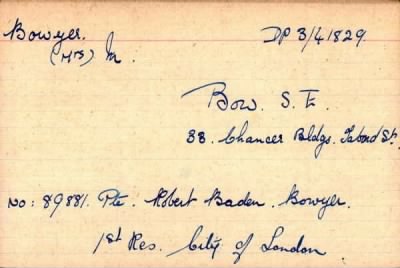 Bowyer. DP 3/41829.
(Mrs) M.
Boro. S.E.
33. Chaucer Bldgs. Tabard St.
No: 89881. Pte. Robert Baden. Bowyer.
1st Res. City of London